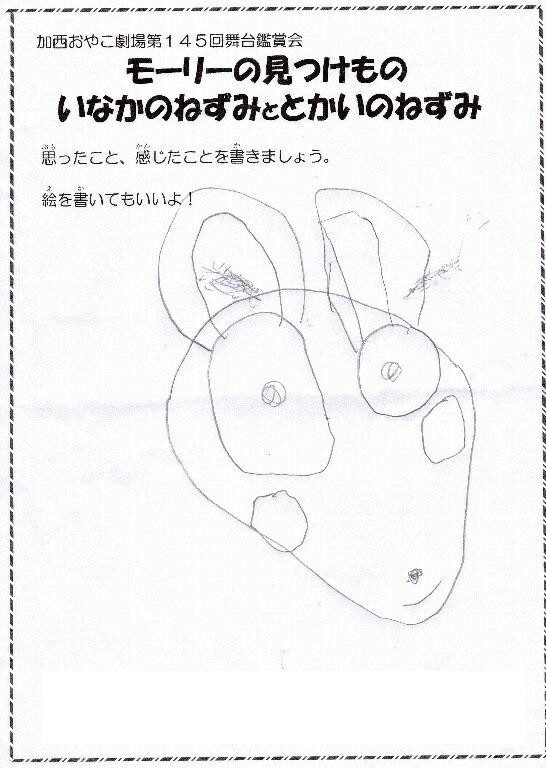 加西おやこ劇場第１４５回舞台鑑賞会
モーリーの見つけもの
いなかのねずみととかいのねずみ
思ったこと、感じたことを書きましょう。
絵を書いてもいいよ！